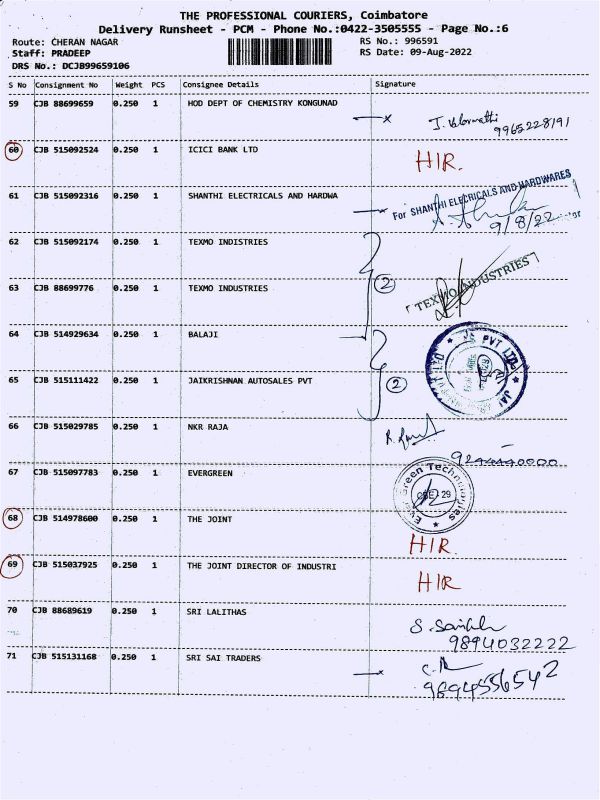 THE PROFESSIONAL COURIERS, Coimbatore
Delivery Runsheet - PCM - Phone No.:0422-3505555 - Page No.:6
Route: CHERAN NAGAR RS No.: 996591
Staff: PRADEEP RS Date: 09-Aug-2022
DRS No.: DCJB99659106
S No Consignment No Weight PCS Consignee Details Signature
59 CJB 88699659 0.250 1 HOD DEPT OF CHEMISTRY KONGUNAD
9965228191
60 CJB 515092524 0.250 1 ICICI BANK LTD HIR.
61 CJB 515092316 0.250 1 SHANTHI ELECTRICALS AND HARDWA For SHANTHI ELECRICALS AND HARDWARES
9/8/22
62 CJB 515092174 0.250 1 TEXMO INDISTRIES
2
63 CJB 88699776 0.250 1 TEXMO INDUSTRIES TEXMO INDUSTRIES
64 CJB 514929634 0.250 1 BALAJI
PVT LTD
65 CJB 515111422 0.250 1 JAIKRISHNAN AUTOSALES PVT 2
JAI
66 CJB 515029785 0.250 1 NKR RAJA
67 CJB 515097783 0.250 1 EVERGREEN Ever Green Technologies
CBE 29
68 CJB 514978600 0.250 1 THE JOINT
HIR
69 CJB 515037925 0.250 1 THE JOINT DIRECTOR OF INDUSTRI
HIR
70 CJB 88689619 0.250 1 SRI LALITHAS
9894032222
71 CJB 515131168 0.250 1 SRI SAI TRADERS
9894556542